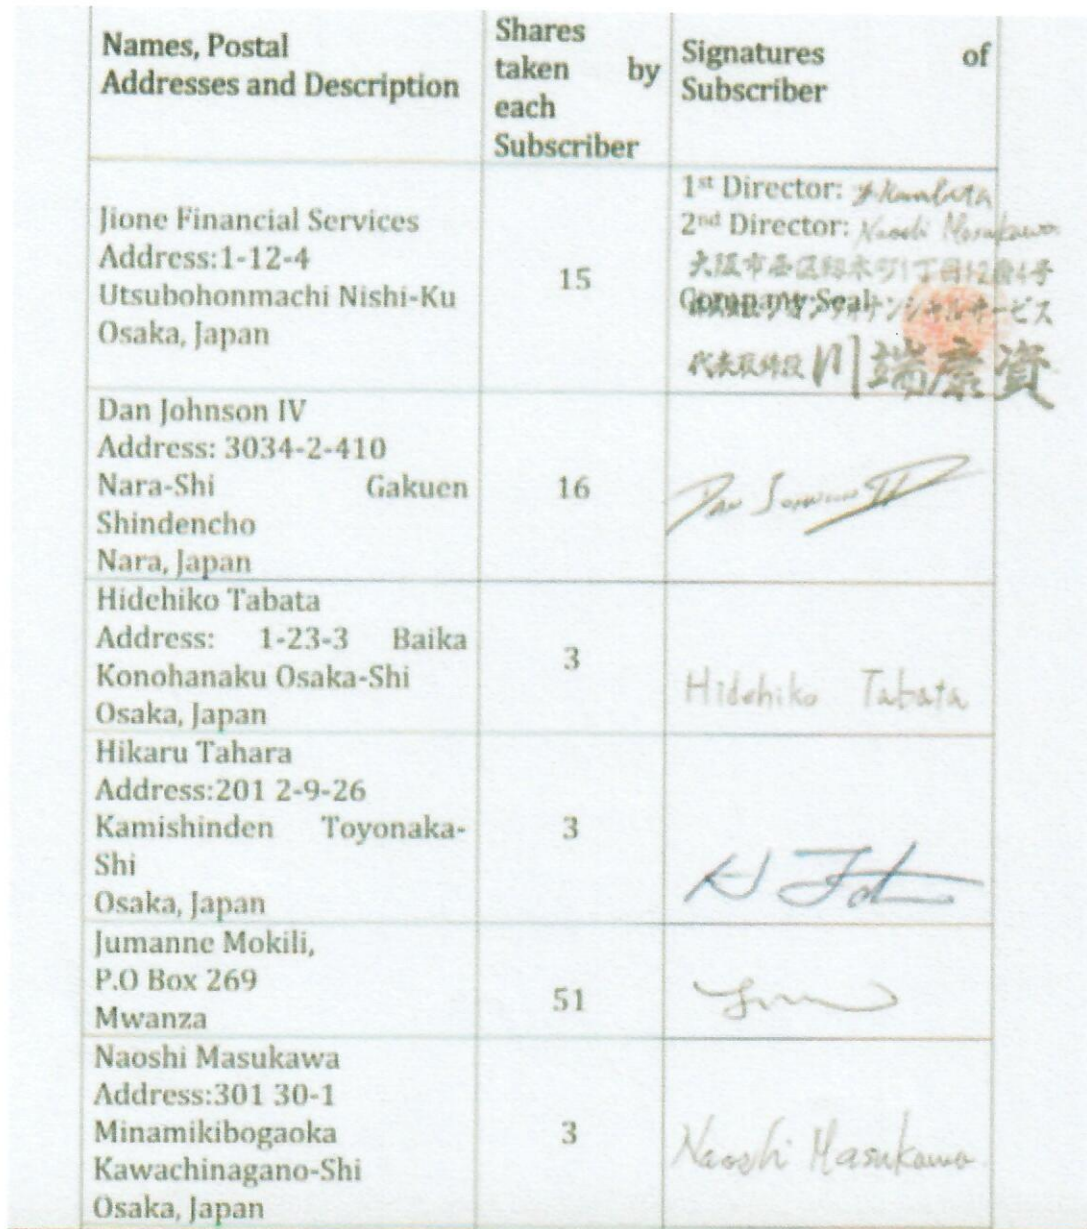 Names, Postal
Addresses and Description
Shares
taken by
each
Subscriber
Signatures of
Subscriber
Jione Financial Services
Address:1-12-4
Utsubohonmachi Nishi-Ku
Osaka, Japan
15
1st Director:
2nd Director: Naoshi Masukawa
大阪市西区靭本町1丁目12番4号
Company Seal
代表取締役 川端康資
Dan Johnson IV
Address: 3034-2-410
Nara-Shi Gakuen
Shindencho
Nara, Japan
16
Dan Johnson IV
Hidehiko Tabata
Address: 1-23-3 Baika
Konohanaku Osaka-Shi
Osaka, Japan
3
Hidehiko Tabata
Hikaru Tahara
Address:201 2-9-26
Kamishinden Toyonaka-
Shi
Osaka, Japan
3
Jumanne Mokili,
P.O Box 269
Mwanza
51
Naoshi Masukawa
Address:301 30-1
Minamikibogaoka
Kawachinagano-Shi
Osaka, Japan
3
Naoshi Masukawa